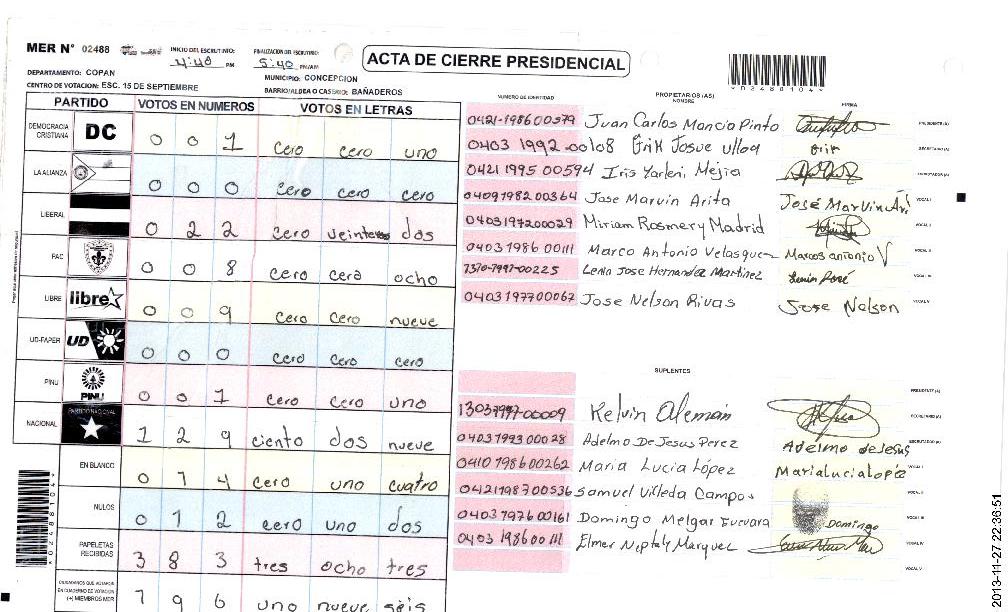 MER N° 02488
INICIO DEL ESCRUTINIO: 4:40 PM
FINALIZACION DEL ESCRUTINIO: 5:40 PM/AM
ACTA DE CIERRE PRESIDENCIAL
*02488104*
DEPARTAMENTO: COPAN
MUNICIPIO: CONCEPCION
CENTRO DE VOTACION: ESC. 15 DE SEPTIEMBRE
BARRIO/ALDEA O CASERIO: BAÑADEROS
PARTIDO VOTOS EN NUMEROS VOTOS EN LETRAS
DEMOCRACIA CRISTIANA DC 0 0 1 cero cero uno
LA ALIANZA 0 0 0 cero cero cero
LIBERAL 0 2 2 cero dos
PAC 0 0 8 cero cero ocho
LIBRE libre 0 0 9 cero cero nueve
UD-FAPER UD 0 0 0 cero cero cero
PINU PINU 0 0 1 cero cero uno
NACIONAL PARTIDO NACIONAL 1 2 9 ciento dos nueve
EN BLANCO 0 1 4 cero uno cuatro
NULOS 0 1 2 cero uno dos
PAPELETAS RECIBIDAS 3 8 3 tres ocho tres
CIUDADANOS QUE VOTARON EN CUADERNO DE VOTACION (+) MIEMBROS MER 1 9 6 uno nueve seis
*02488104*
NUMERO DE IDENTIDAD PROPIETARIOS (AS) NOMBRE FIRMA
0421-198600579 Juan Carlos Mancia Pinto PRESIDENTE (A)
0403 1992-00108 Erik Josue Ulloa Erik SECRETARIO (A)
0421 1995 00594 Iris Yarleni Mejia ESCRUTADOR (A)
0409 1982 00364 Jose Marvin Arita José Marvin Ari VOCAL I
0403197200029 Miriam Rosmery Madrid VOCAL II
0403 1986 00111 Marco Antonio Velasquez Marcos antonio V VOCAL III
Jose Hernandez Martinez VOCAL IV
0403197700067 Jose Nelson Rivas Jose Nelson VOCAL V
SUPLENTES
PRESIDENTE (A)
Kelvin Alemán SECRETARIO (A)
0403199300028 Adelmo De Jesus Perez Adelmo deJesus ESCRUTADOR (A)
0410 198600262 Maria Lucia López MariaLuciaLope VOCAL I
0421198700536 Samuel Villeda Campos VOCAL II
0403797600161 Domingo Melgar Guevara Domingo VOCAL III
0403 198600111 Elmer Niptaly Marquez VOCAL IV
VOCAL V
2013-11-27 22:36:51